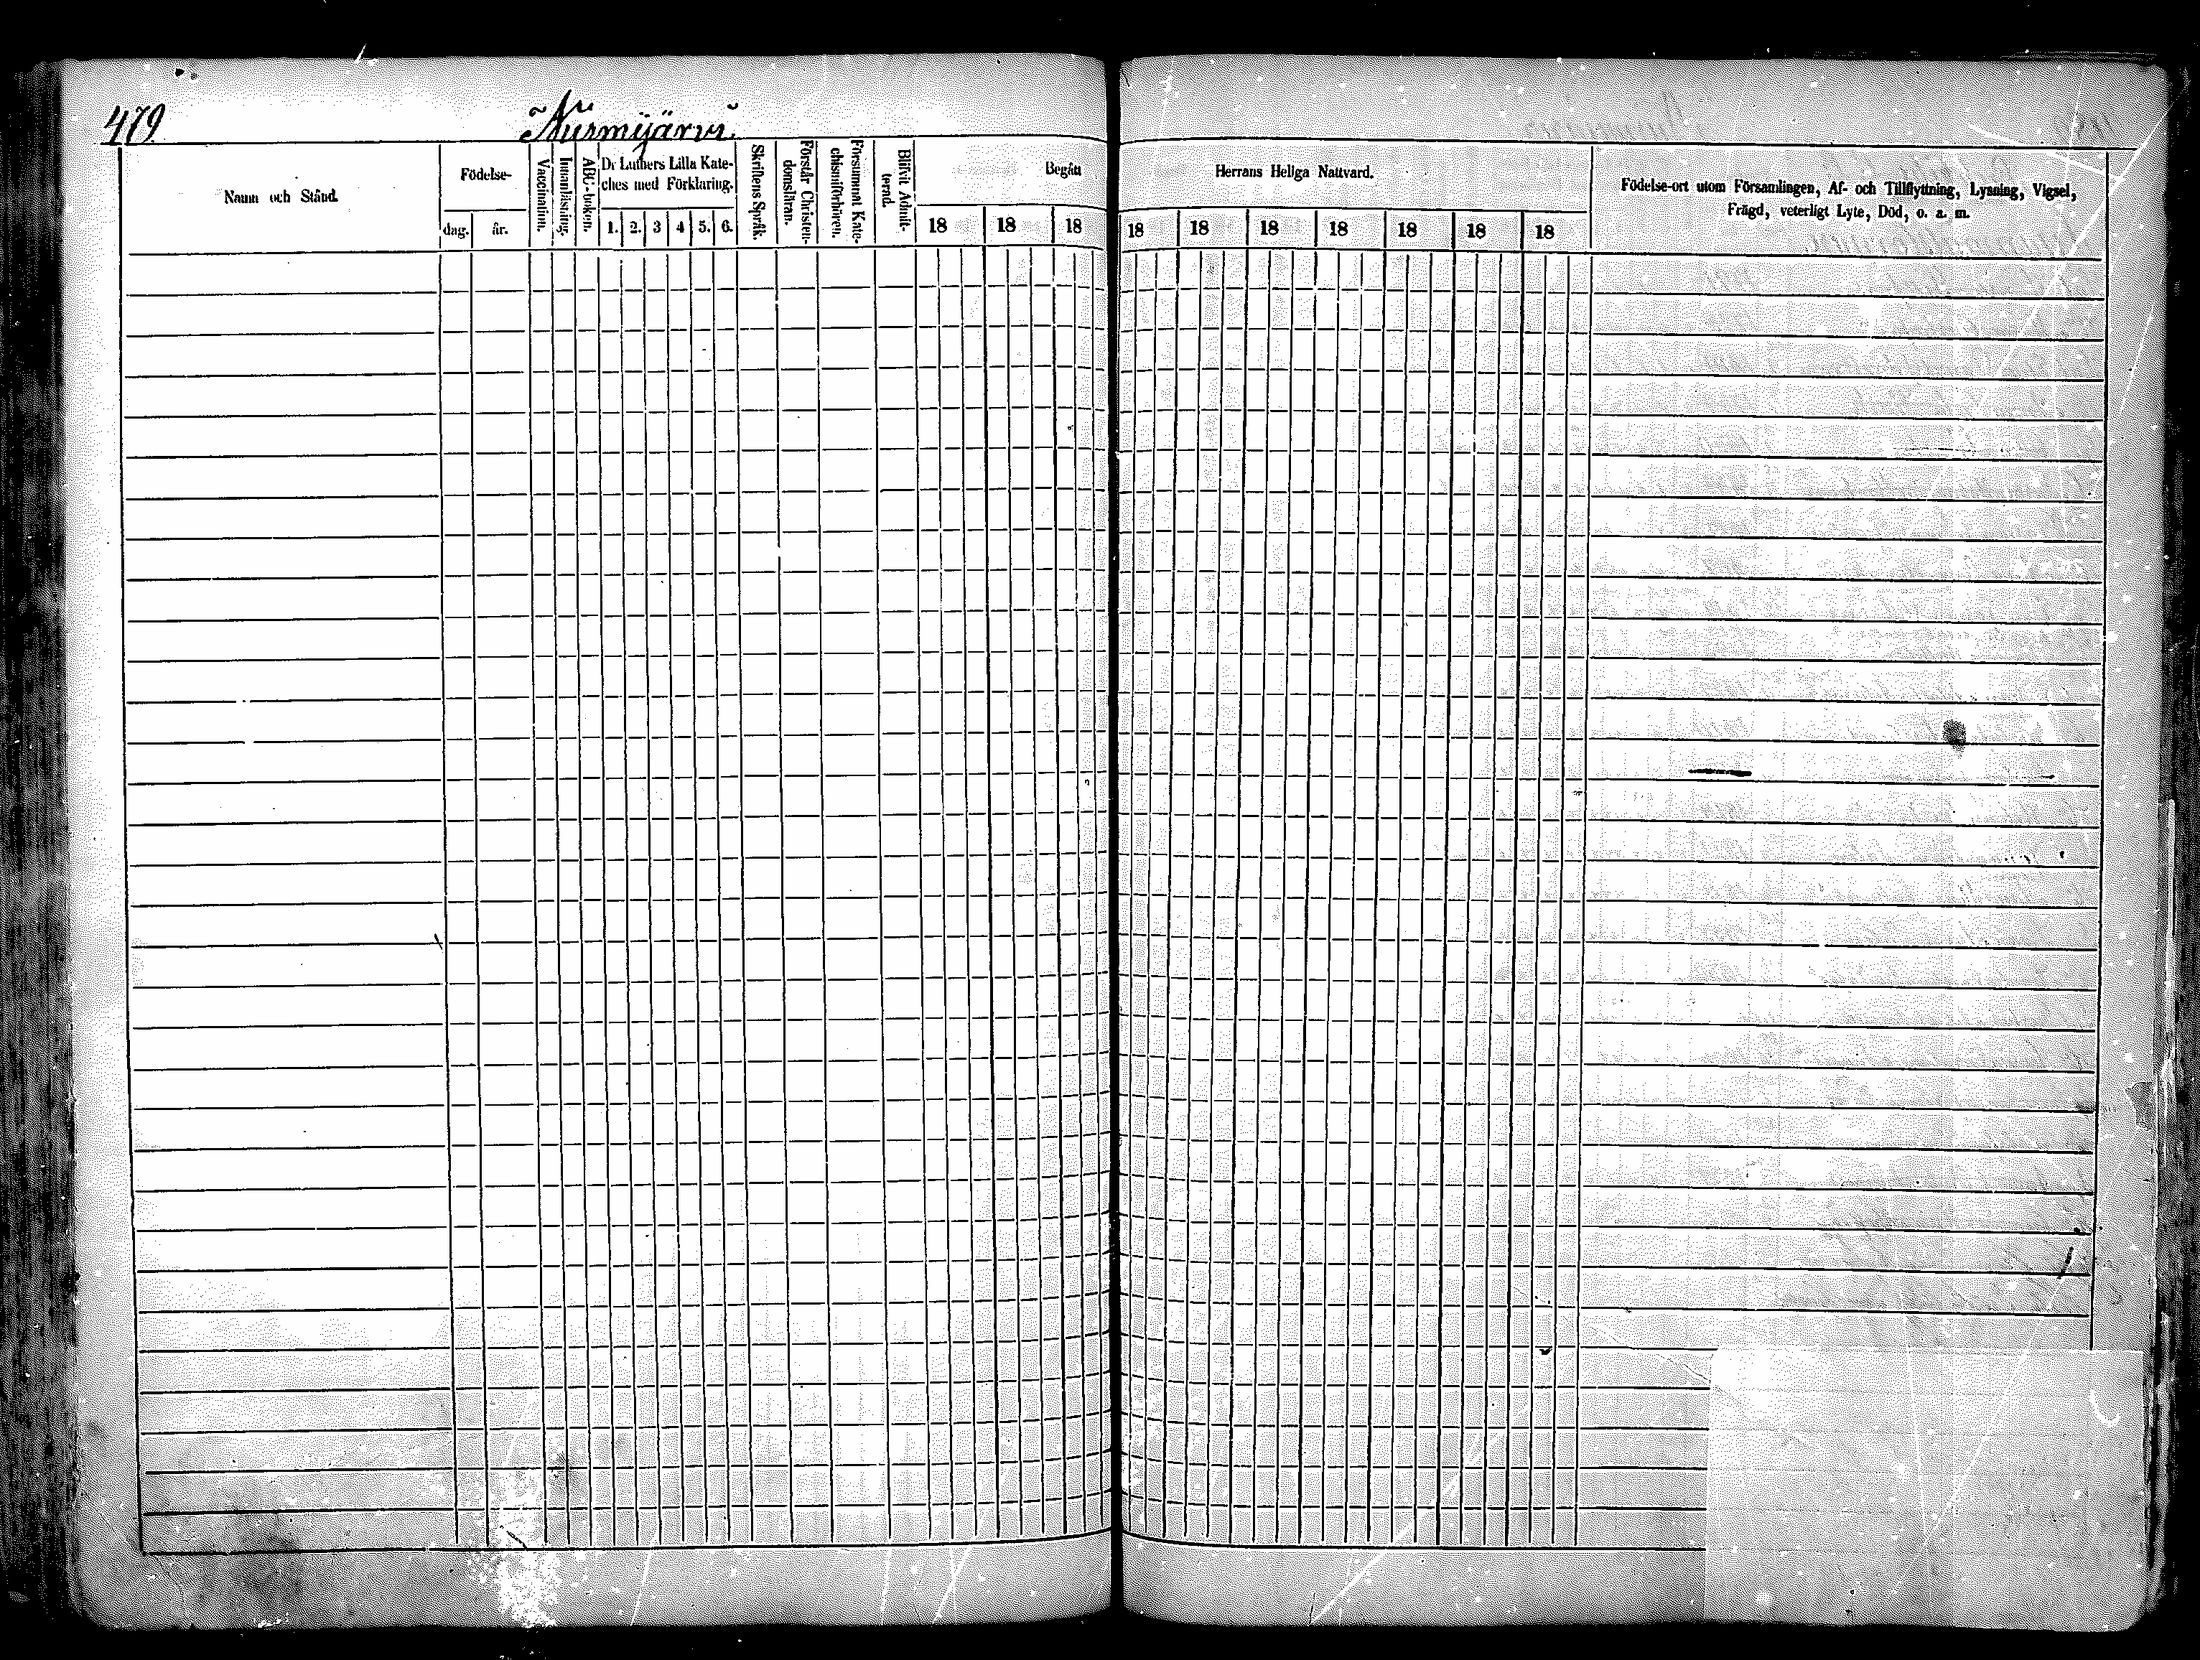 479.
Nurmijärvi
Namn och Stånd.
Födelse-
dag.
år.
Vaccination.
Innanläsning.
ABC-boken.
Dr Luthers Lilla Kate-
ches med Förklaring.
1. 2. 3 4 5. 6.
Skriftens Språk.
Förstår Christen-
domsläran.
Försummat Kate-
chismiförhören.
Blifvit Admit-
terad.
Begått
Herrans Heliga Nattvard.
18 18 18 18 18 18 18 18 18 18
Födelse-ort utom Församlingen, Af- och Tillflyttning, Lysning, Vigsel,
Frägd, veterligt Lyte, Död, o. a. m.